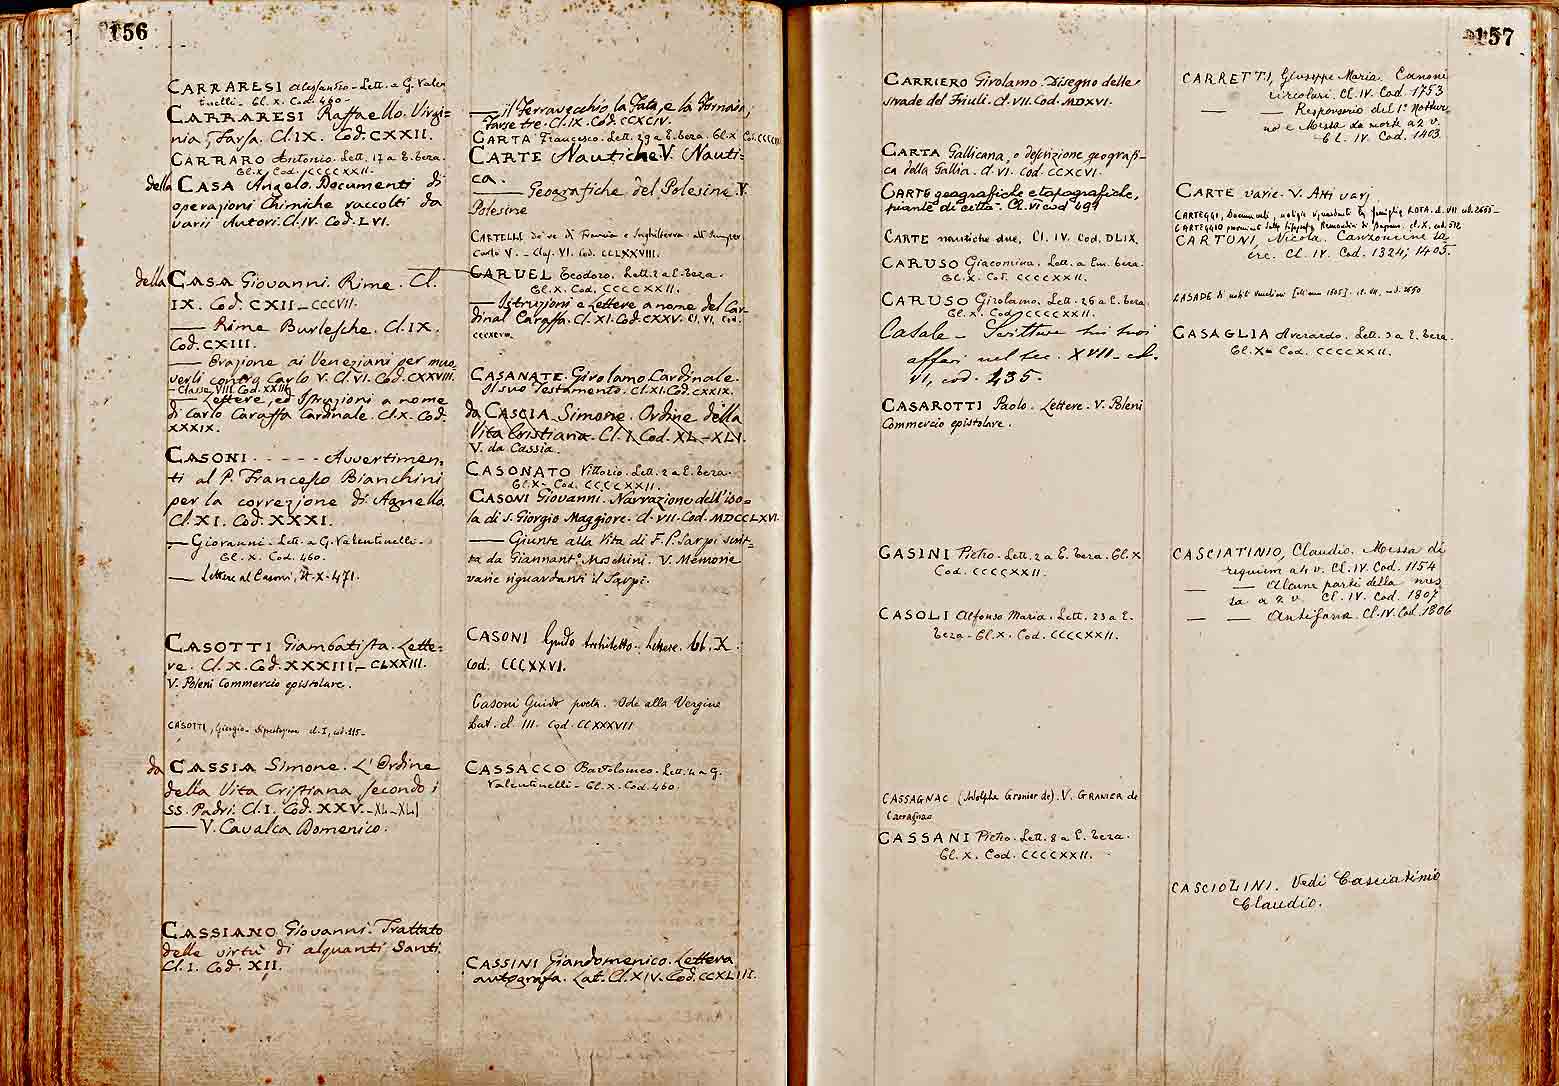 156
CARRARESI Alessandro - Lett. a G. Valen
tinelli - Cl. X. Cod. 460 -
CARRARESI Raffaello. Virgi-
nia, Farsa. Cl. IX. Cod. CXXII.
CARRARO Antonio. Lett. 17 a E. Teza.
Cl. X. Cod. CCCCXXII.
della CASA Angelo. Documenti di
operazioni Chimiche raccolti da
varii Autori. Cl. IV. Cod. LVI.
della CASA Giovanni. Rime. Cl.
IX. Cod. CXII - CCCVII.
— Rime Burlesche. Cl. IX.
Cod. CXIII.
— Orazione ai Veneziani per muo-
verli contro Carlo V. Cl. VI. Cod. CXXVIII.
- Classe VIII Cod. XXIII
— Lettere, ed Istruzioni a nome
di Carlo Caraffa Cardinale. Cl. X. Cod.
XXXIX.
CASONI - - - - - Avvertimen,
ti al P. Francesco Bianchini
per la correzione di Agnello.
Cl. XI. Cod. XXXI.
— Giovanni - Lett. a G. Valentinelli -
Cl. X. Cod. 460.
— Lettere al Casoni, It. X. 471.
CASOTTI Giambatista. Lette-
re. Cl. X. Cod. XXXIII - CLXXIII.
V. Poleni Commercio epistolare.
CASOTTI, Giorgio - cl. I, cod. 115 -
da CASSIA Simone. L'Ordine
della Vita Cristiana secondo i
SS. Padri. Cl. I. Cod. XXV. - XL - XLI
— V. Cavalca Domenico.
CASSIANO Giovanni. Trattato
delle virtù di alquanti Santi.
Cl. I. Cod. XII.
— il Ferravecchio la Fata, e la Fornaia,
Farse tre. Cl. IX. Cod. CCXCIV.
CARTA Francesco. Lett. 29 a E. Teza. Cl. X Cod. CCCCXXII
CARTE Nautiche V. Nauti-
ca.
— Geografiche del Polesine V.
Polesine
CARTELLI de' re di Francia e Inghilterra all'Imper
Carlo V. - Clas. VI. Cod. CCLXXVIII.
CARUEL Teodoro. Lett. 2 a E. Teza.
Cl. X. Cod. CCCCXXII.
— Istruzioni e Lettere a nome del Car-
dinal Caraffa. Cl. XI. Cod. CXXV. Cl. VI. Cod.
CASANATE Girolamo Cardinale.
Il suo Testamento. Cl. XI. Cod. CXXIX.
da CASCIA Simone. Ordine della
Vita Cristiana. Cl. I. Cod. XL - XLI.
V. da Cassia.
CASONATO Vittorio. Lett. 2 a E. Teza.
Cl. X - Cod. CCCCXXII.
CASONI Giovanni. Narrazione dell'iso=
la di S. Giorgio Maggiore. Cl. VII. Cod. MDCCLXVI.
— Giunte alla Vita di F. P. Sarpi scrit-
ta da Giannant.º Moschini. V. Memorie
varie riguardanti il Sarpi.
CASONI Guido Architetto. Lettere. Cl. X.
Cod. CCCXXVI.
Casoni Guido poeta. Ode alla Vergine
Lat. cl. III. Cod. CCXXXVII
CASSACCO Bartolomeo. Lett. 4 a G.
Valentinelli - Cl. X. Cod. 460.
CASSINI Giandomenico. Lettera
autografa. Lat. Cl. XIV. Cod. CCXLIII.
157
CARRIERO Girolamo. Disegno delle
strade del Friuli. Cl. VII. Cod. MDXVI.
CARTA Gallicana, o descrizione geografi-
ca della Gallia. Cl. VI. Cod. CCXCVI.
CARTE geografiche e topografiche,
piante di città. Cl. VI cod 491
CARTE nautiche due. Cl. IV. Cod. DLIX.
CARUSO Giacomina. Lett. a Em. Teza.
Cl. X. Cod. CCCCXXII.
CARUSO Girolamo. Lett. 26 a E. Teza.
Cl. X. Cod. CCCCXXII.
Casale - Scritture sui suoi
affari nel sec. XVII - cl.
VI, cod. 435.
CASAROTTI Paolo. Lettere. V. Poleni
Commercio epistolare.
CASINI Pietro. Lett. 2 a E. Teza. Cl. X
Cod. CCCCXXII.
CASOLI Alfonso Maria. Lett. 23 a E.
Teza - Cl. X. Cod. CCCCXXII.
CASSAGNAC (Adolphe Granier de). V. GRANIER de
Cassagnac
CASSANI Pietro. Lett. 8 a E. Teza.
Cl. X. Cod. CCCCXXII.
CARRETTI, Giuseppe Maria. Canoni
circolari. Cl. IV. Cod. 1753
— Responsorio del 1º Nottur
no e Messa da morto a 2 v.
Cl. IV. Cod. 1403.
CARTE varie. V. Atti varj
CARTEGGI, Documenti, notizie riguardanti la famiglia ROTA. cl. VII cod. 2665 -
CARTEGGIO cl. X, cod. 512
CARTONI, Nicola. Canzoncine sa
cre. Cl. IV. Cod. 1324; 1405.
CASADE di nobili veneziani cl. VII, cod. 2650
CASAGLIA Averardo. Lett. 3 a E. Teza.
Cl. X - Cod. CCCCXXII.
CASCIATINIO, Claudio. Messa di
requiem a 4 v. Cl. IV. Cod. 1154
— — Alcune parti della mes
sa a 2 v. Cl. IV. Cod. 1807
— — Antifona Cl. IV. Cod. 1806
CASCIOLINI. Vedi Casciatinio
Claudio.